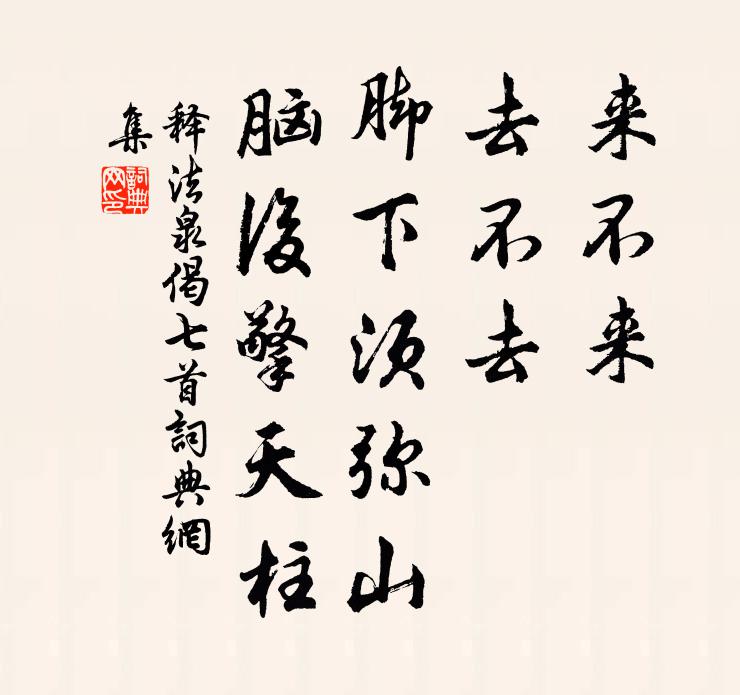 来不来
去不去
脚下须弥山
脑後擎天柱
释法泉偈七首詞典網
集
詞典
网印